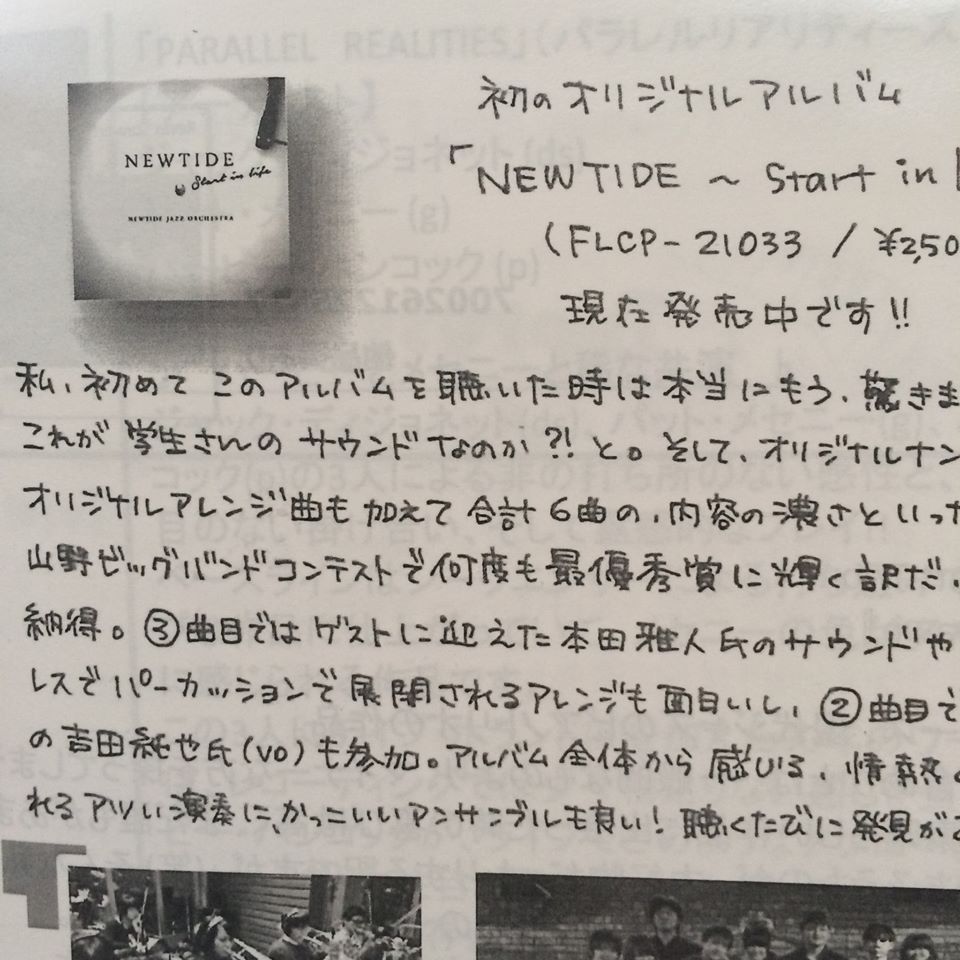 NEWTIDE
Start in life
NEWTIDE JAZZ ORCHESTRA
初のオリジナルアルバム
「NEWTIDE ~ Start in
(FLCP-21033 / ¥2,50
現在発売中です!!
私、初めてこのアルバムを聴いた時は本当にもう、驚きま
これが学生さんのサウンドなのか?!と。そして、オリジナルナン
オリジナルアレンジ曲も加えて合計6曲の、内容の濃さといった
山野ビッグバンドコンテストで何度も最優秀賞に輝く訳だ、
納得。③曲目ではゲストに迎えた本田雅人氏のサウンドや
レスでパーカッションで展開されるアレンジも面白いし、②曲目で
の吉田純也氏(vo)も参加。アルバム全体から感じる、情熱
れるアツい演奏に、かっこいいアンサンブルも良い!聴くたびに発見が
「PARALLEL REALITIES」(パラレルリアリティーズ